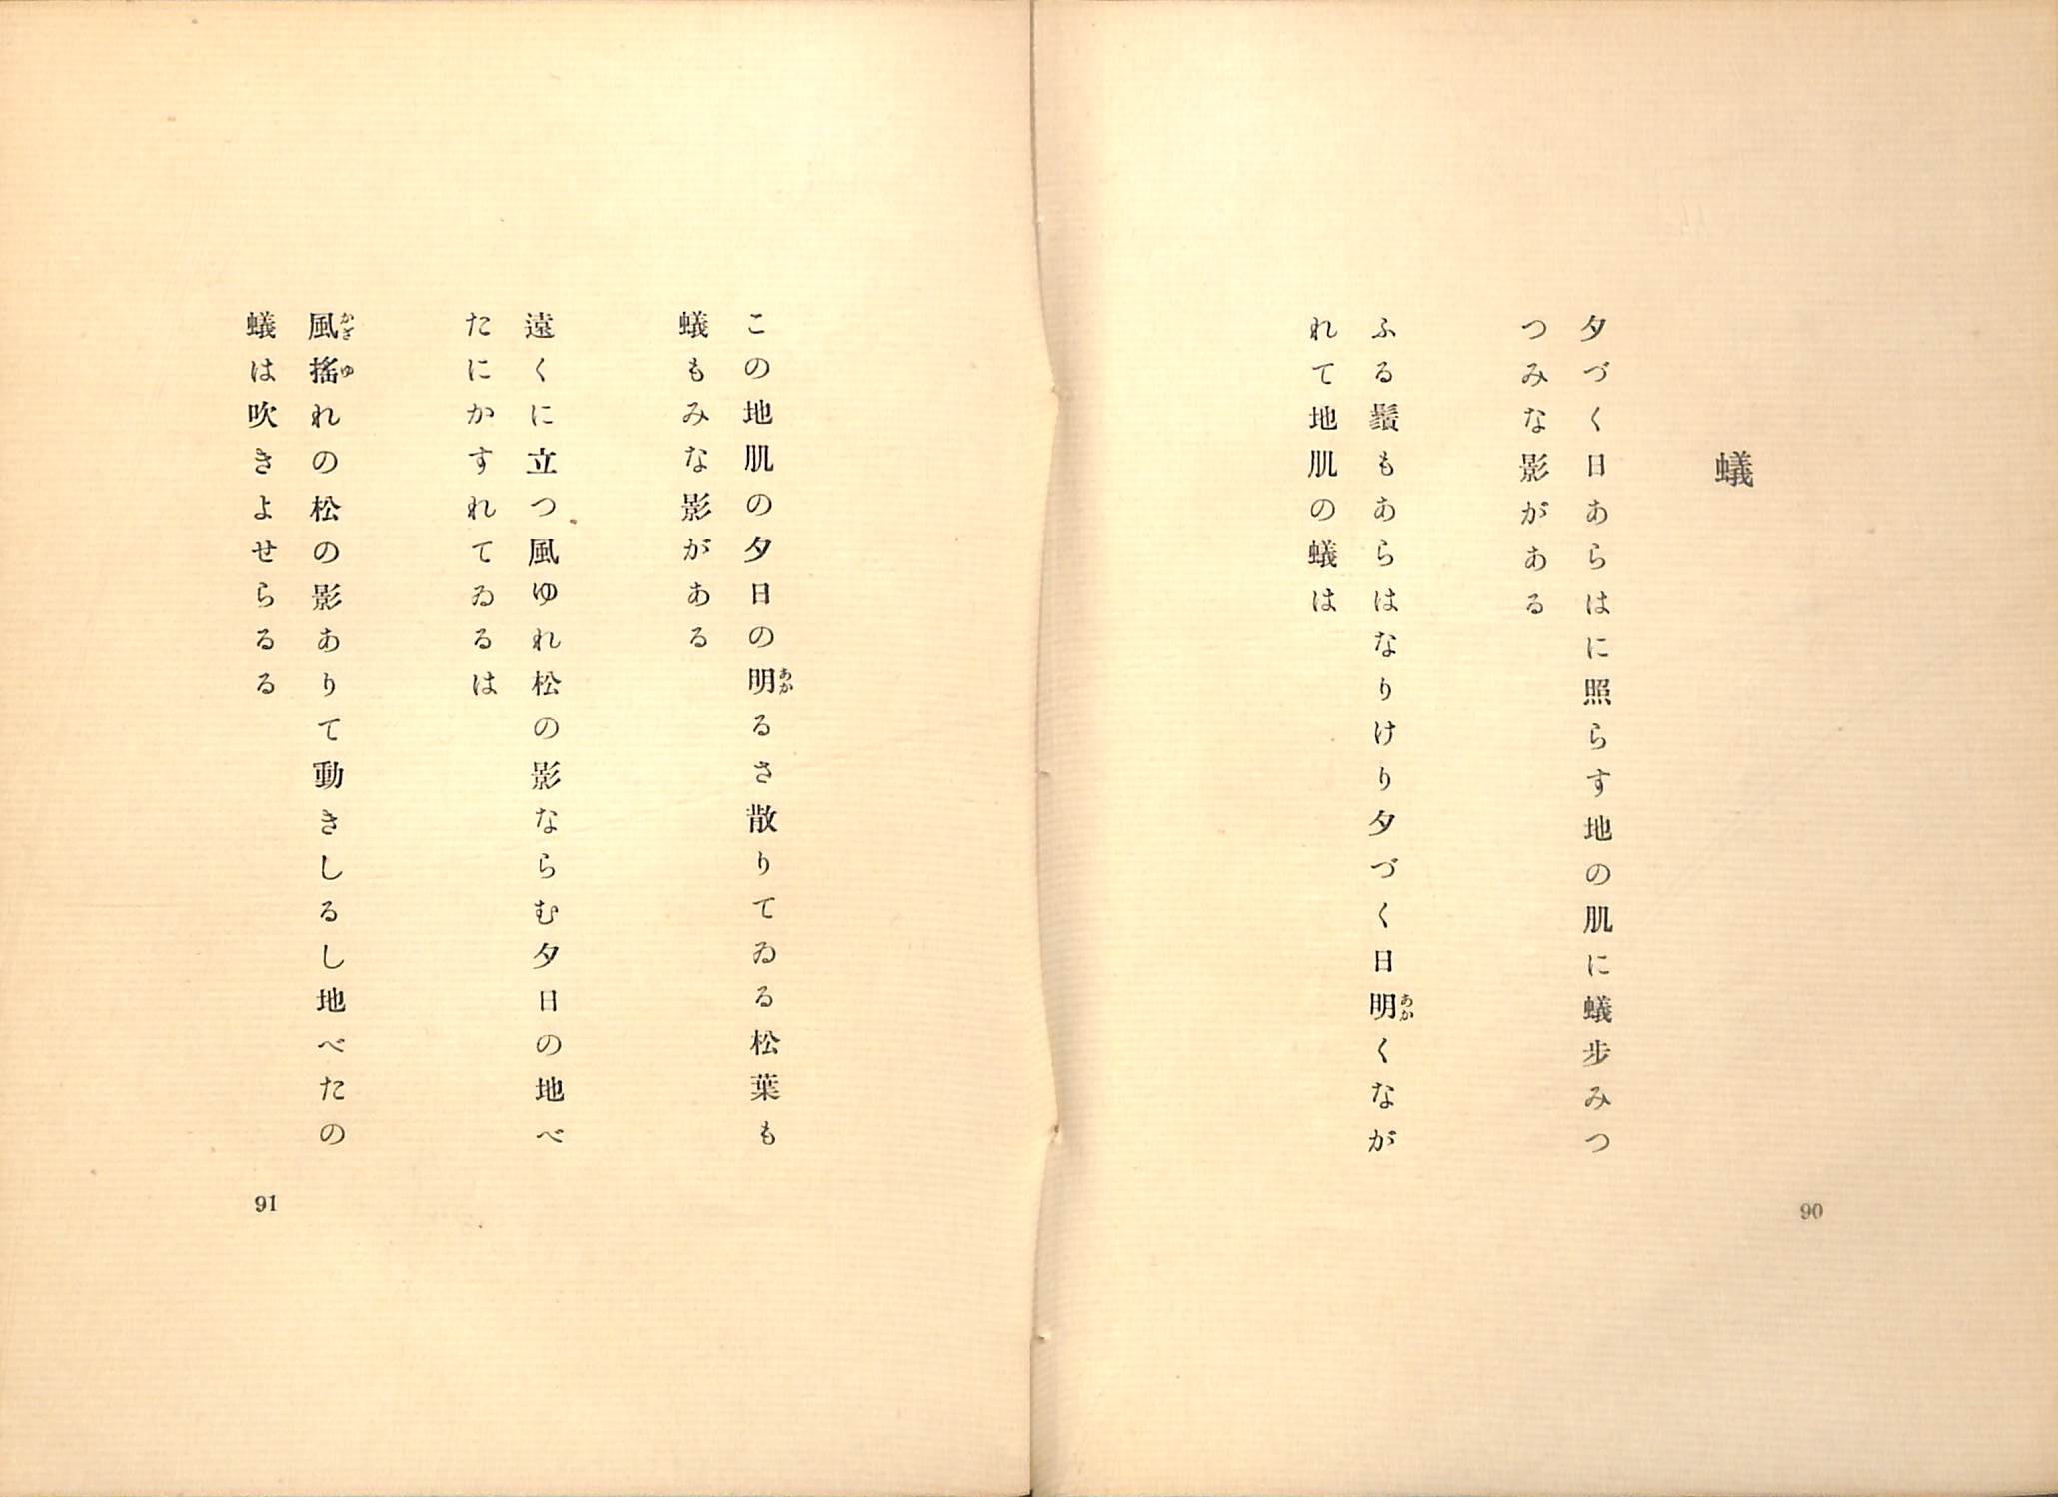 蟻
夕づく日あらはに照らす地の肌に蟻歩みつ
つみな影がある
ふる鬚もあらはなりけり夕づく日明くなが
れて地肌の蟻は
90
この地肌の夕日の明るさ散りてゐる松葉も
蟻もみな影がある
遠くに立つ風ゆれ松の影ならむ夕日の地べ
たにかすれてゐるは
風搖れの松の影ありて動きしるし地べたの
蟻は吹きよせらるる
91